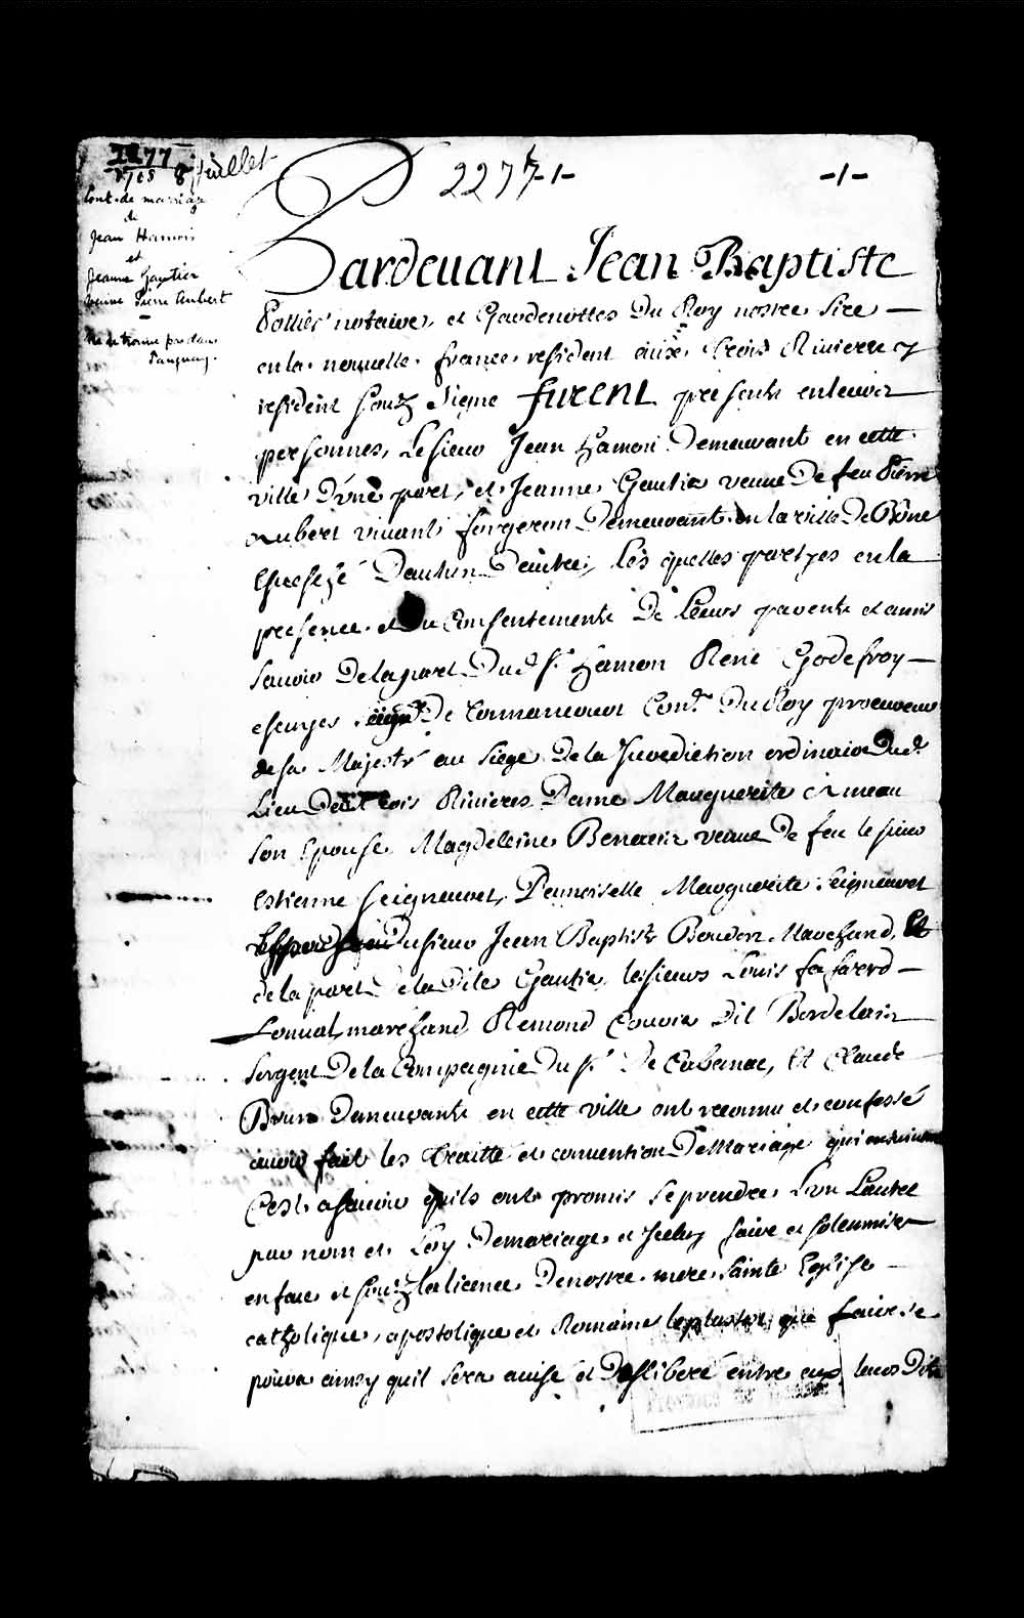 2277
1705 8 juillet
Cont. de mariage
de
Jean Hamon
et
Jeanne Gautier
veuve Pierre Aubert
Ne se trouve pas dans
Tanguay.
2277 -1-
-1-
Pardevant Jean Baptiste
Pottier notaire, et Gardenottes Du Roy nostre Sire —
en la nouvelle france resident aux trois Rivieres y
resident soubz signe furent presents en leurs
personnes, Le sieur Jean hamon Demeurant en cette
ville D'une part, et Jeanne Gautie veuve De feu Pierre
aubert vivant forgeron Demeurant en la ville De
D'autre, les quelles partyes en la
presence et Du Consentement De Leurs parents et amis
Sauoir De la part Dud. Sr. hamon René Godefroy —
escuyer De Tonnancour Conr. Du Roy procureur
de sa Majesté au siege De la Jurediction ordinaire Dud.
Lieu Des trois Rivieres Dame Marguerite ameau
son Epouse Magdeleine Benassis veuve De feu le sieur
Estienne seigneuret, Damoiselle Marguerite seigneuret
Du sieur Jean Baptiste Boudor Marchand, Et
de la part De la Dite Gautie les sieurs Louis fafard —
Lonual marchand, Remond Dit Bordelais
sergent De la Compagnie Du Sr. De Cabanac, Et Claude
Brun Demeurants en cette ville ont reconnu et confessé
avoir fait les traitté et convention De Mariage qui ensuivent
C'est a sauoir quils ont promis se prendre L'un L'autre
par nom et Loy De mariage et Iceluy faire et solemniser
en face et soubz la licence De nostre mere Sainte Eglise —
catholique, apostolique et Romaine le plustost que faire se
poura ainsy quil sera auise et Desliberé entre eux leurs Dits